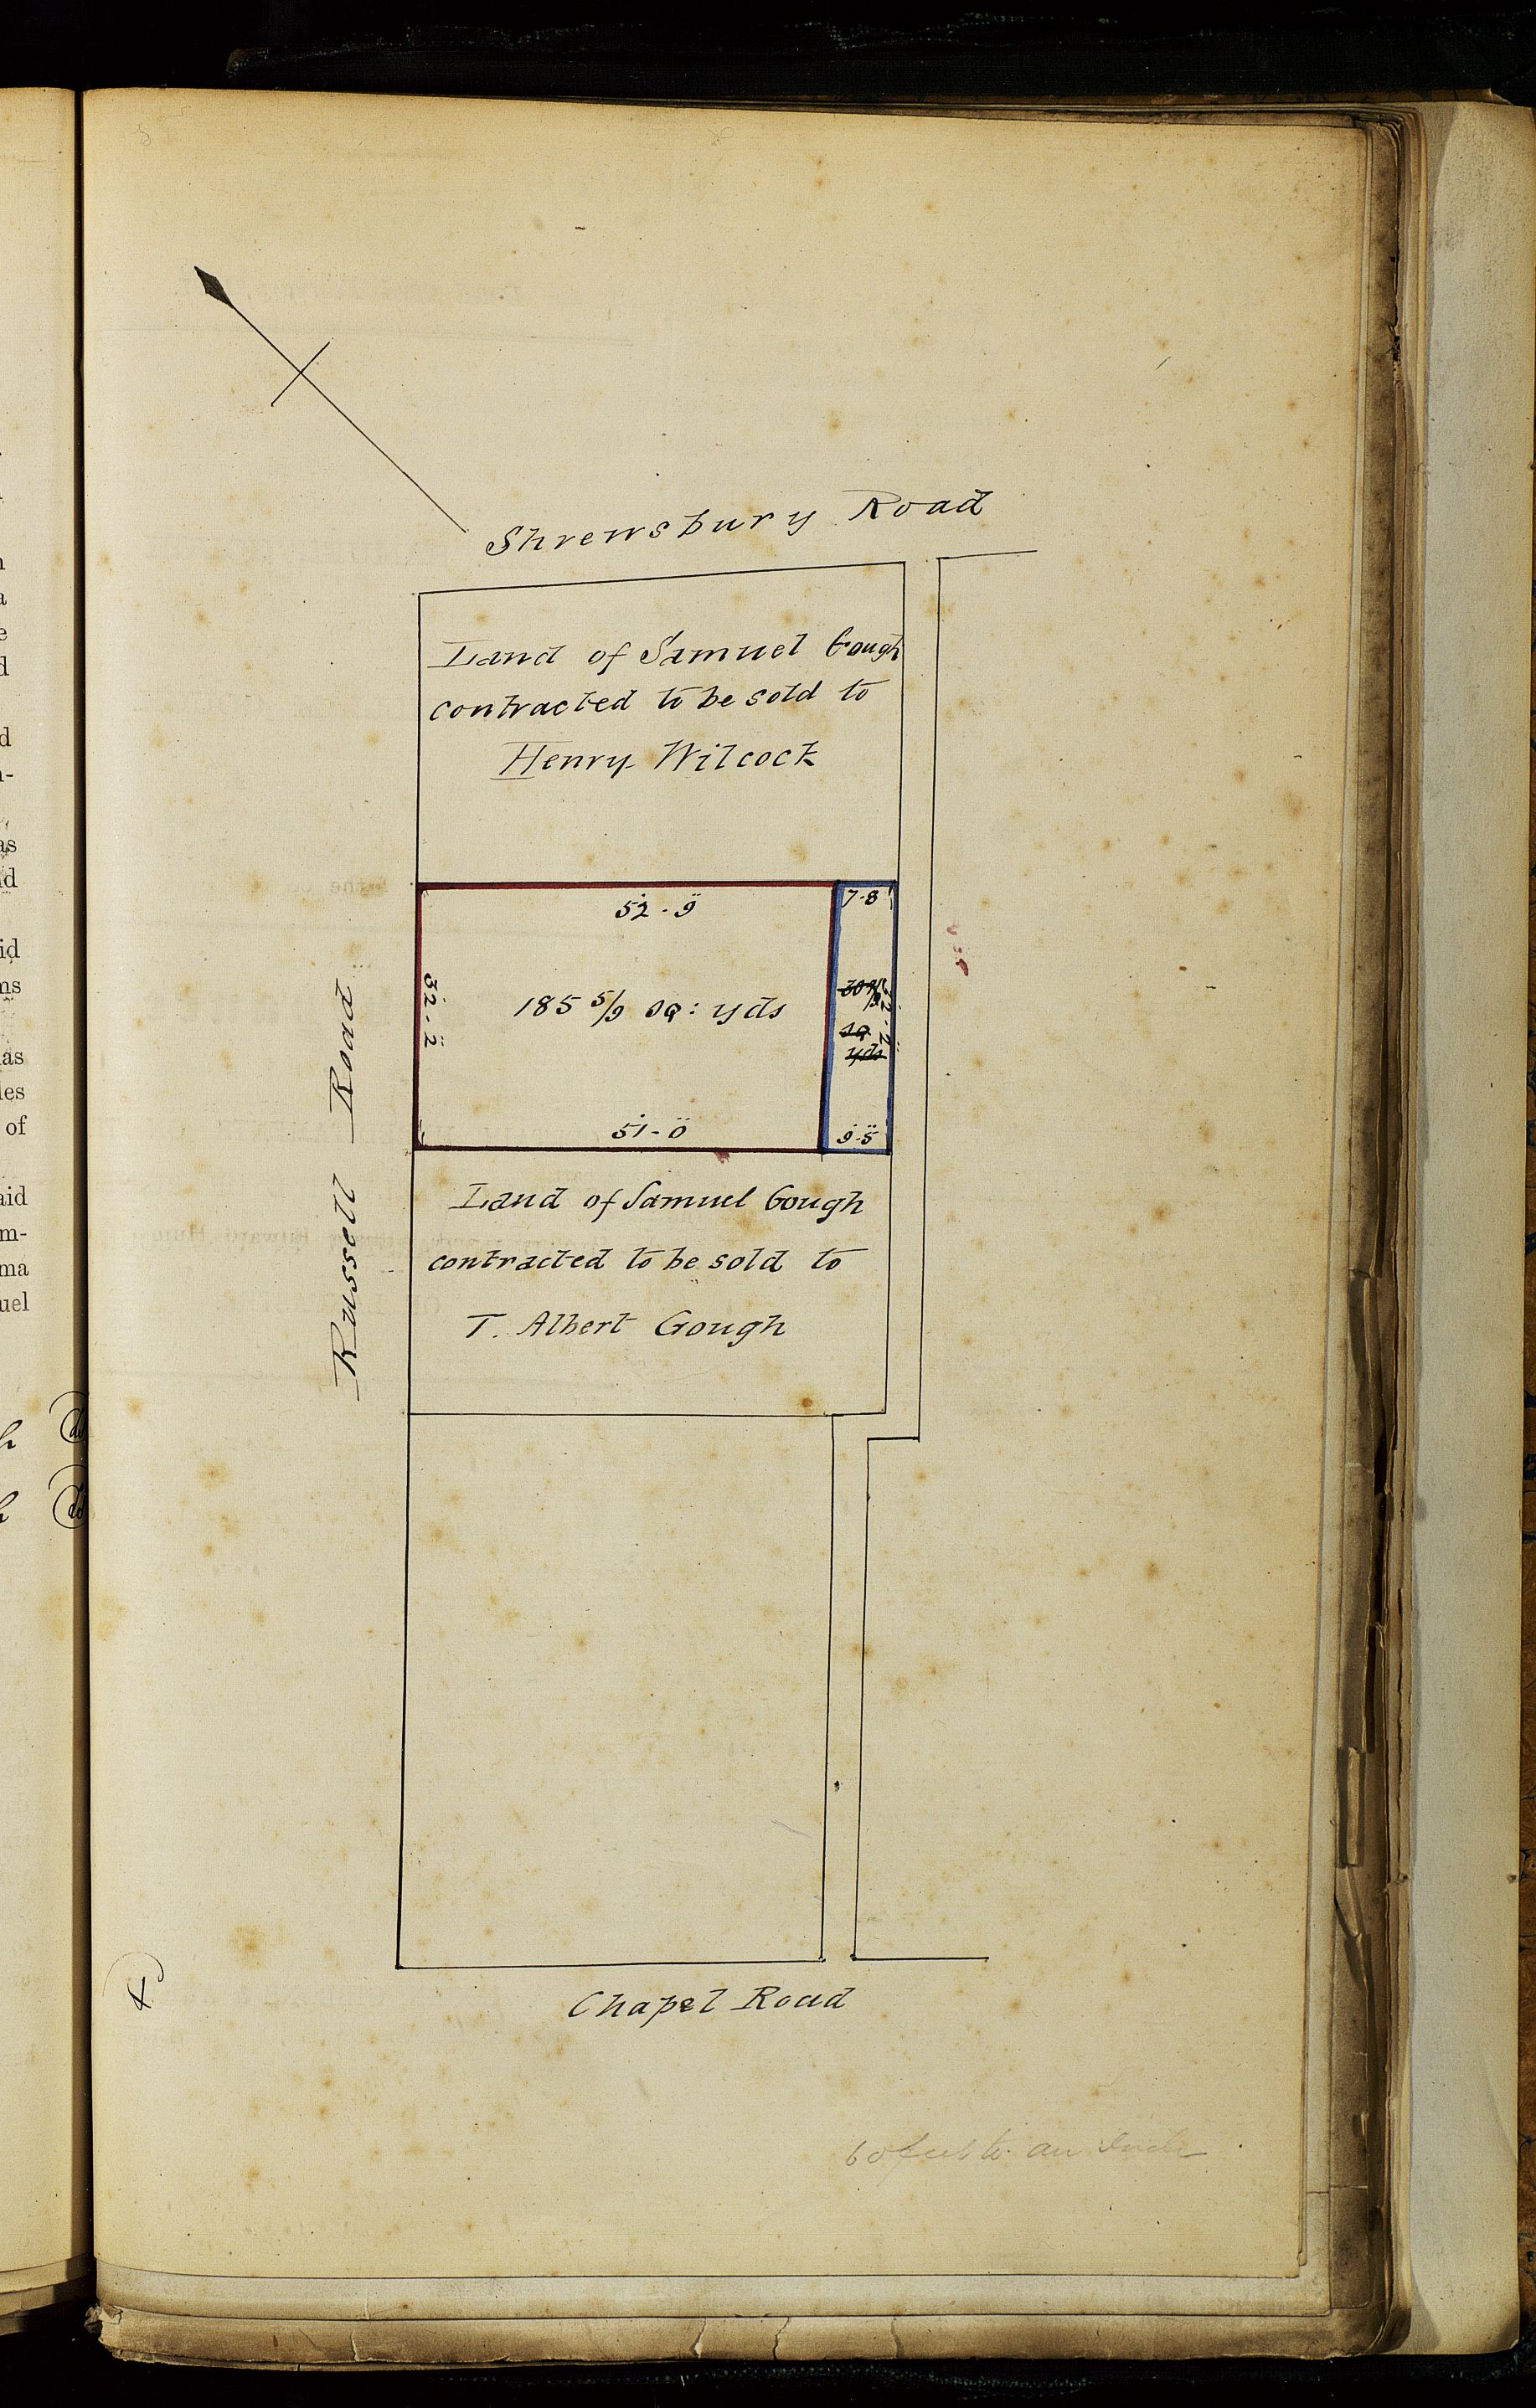 Shrewsbury Road
Land of Samuel Gough
contracted to be sold to
Henry Wilcock
52.9
7.8
32.2
185 5/9 sq: yds
sq
yds
51-0
9.5
Russell Road
Land of Samuel Gough
contracted to be sold to
T. Albert Gough
Chapel Road
60 feet to an Inch
as
id
ns
as
les
of
aid
m-
ma
uel